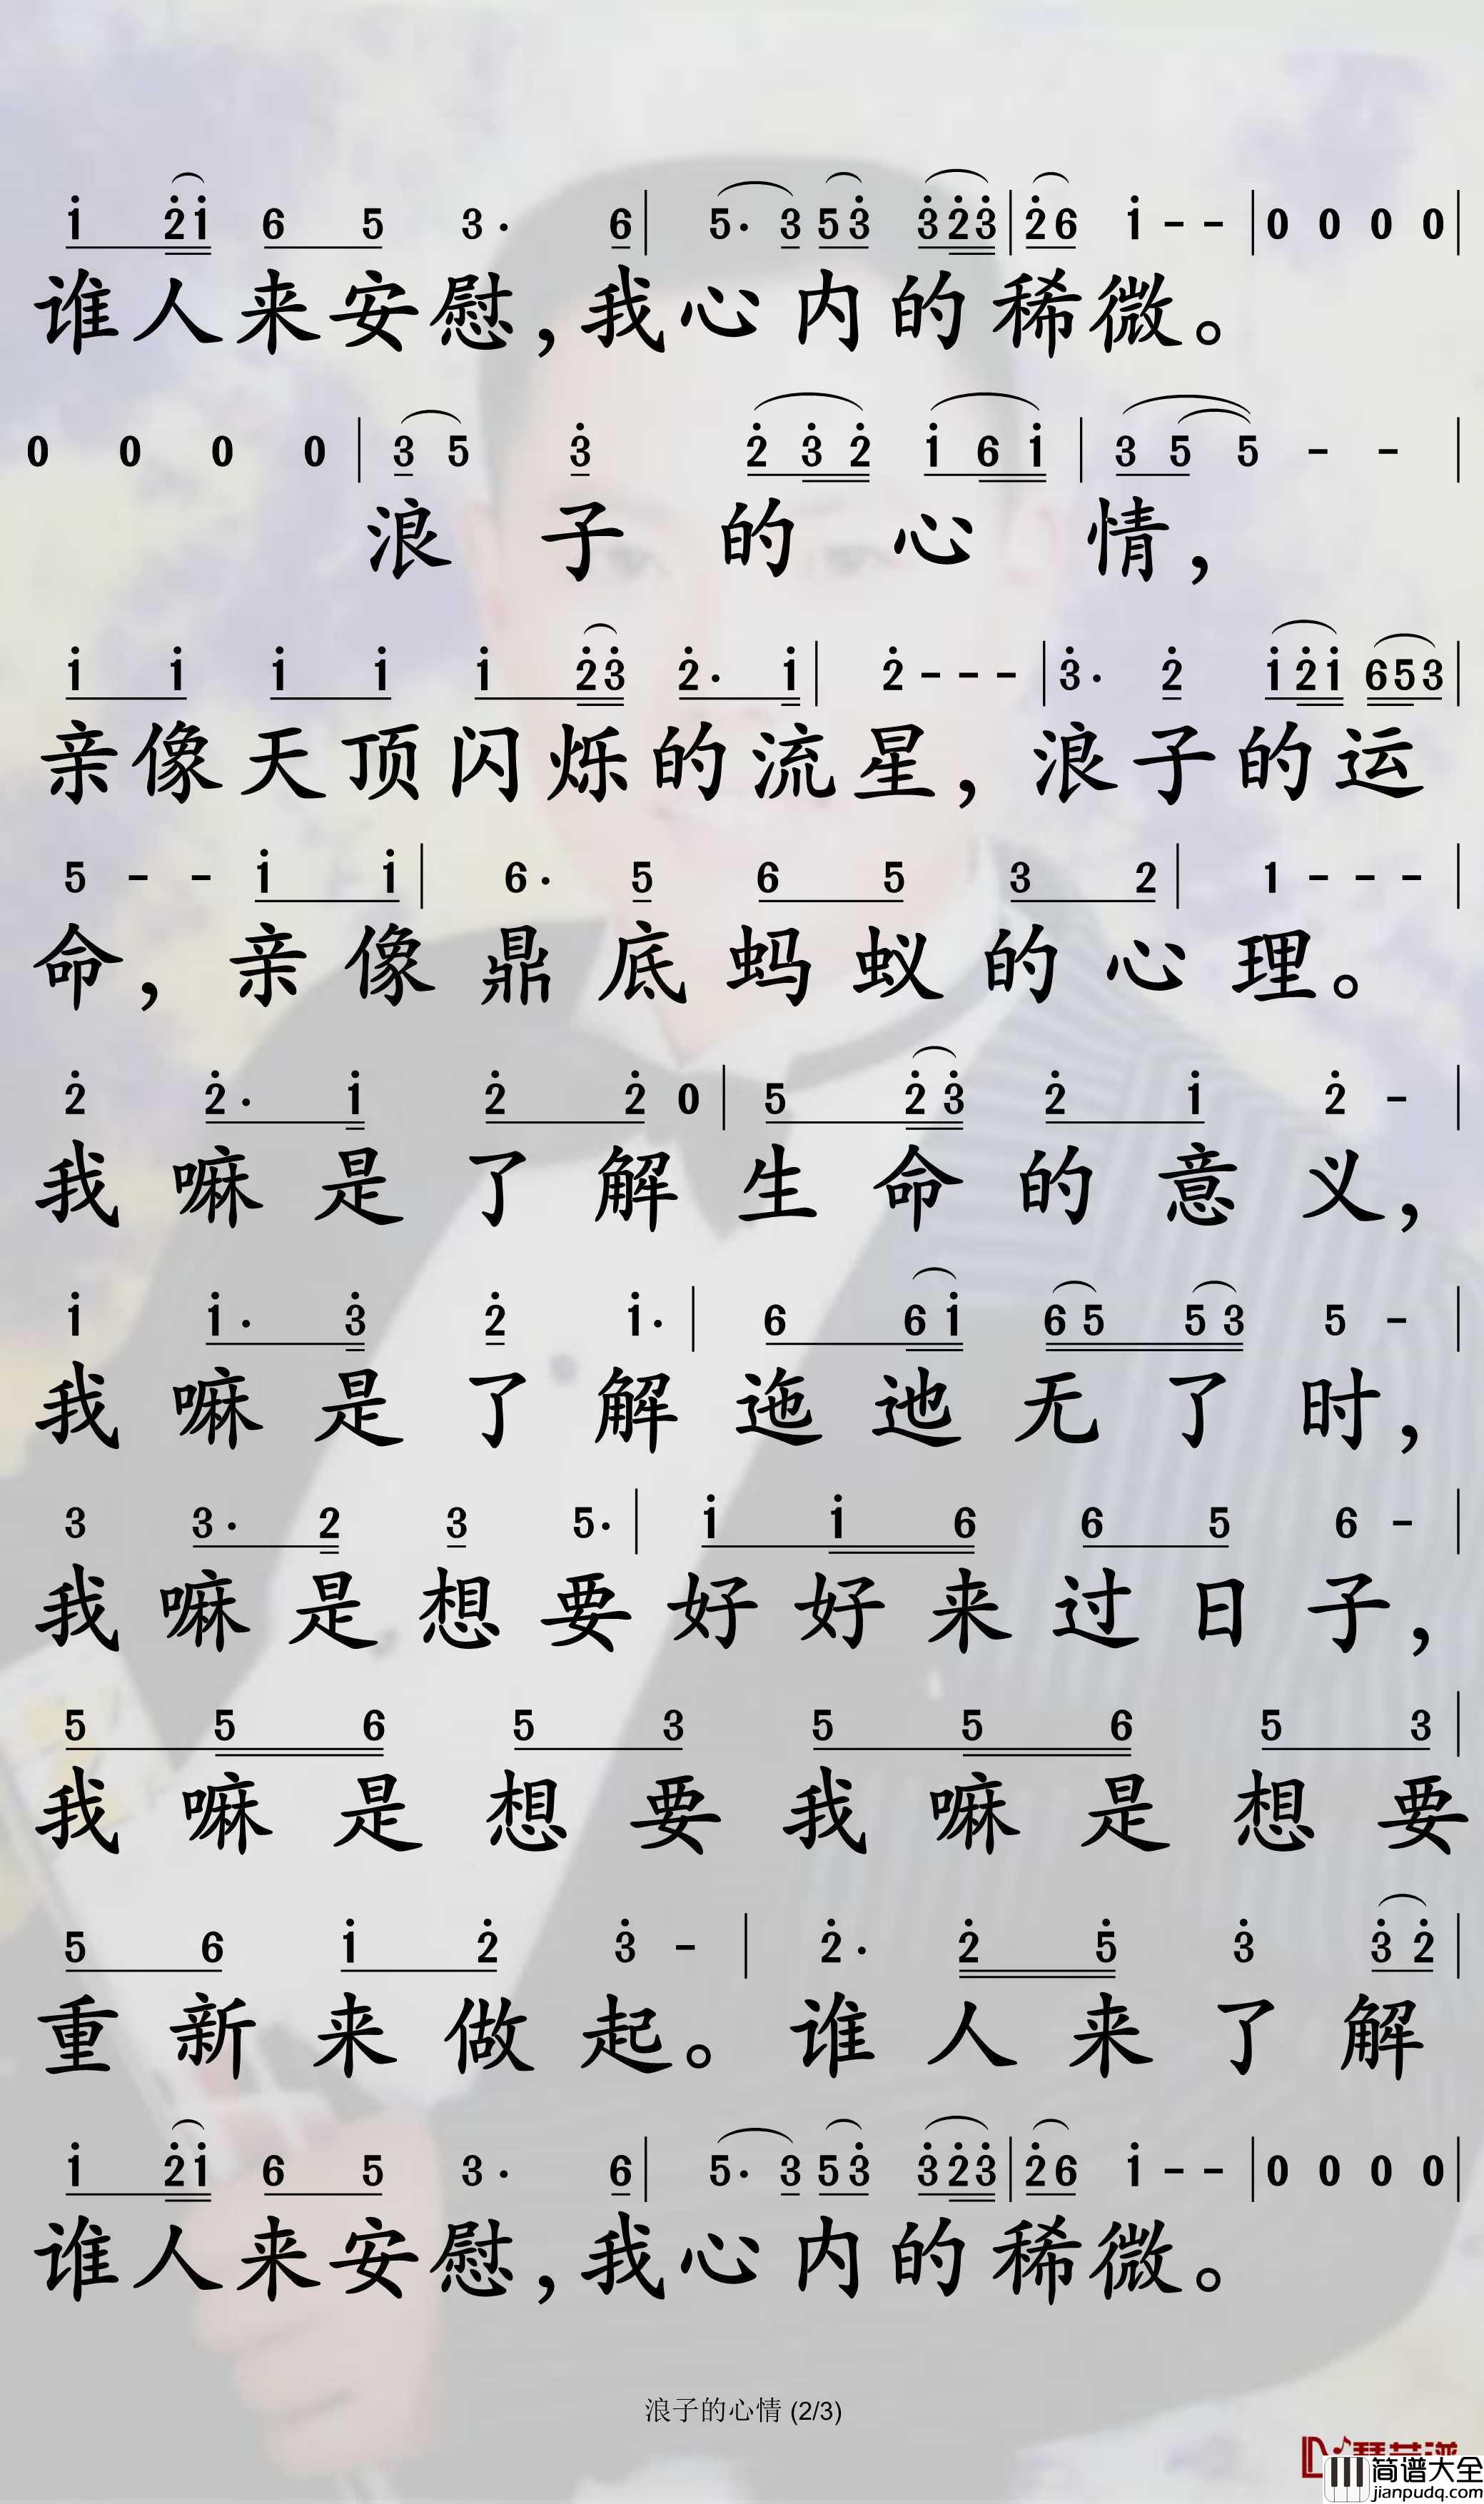 i 2̇i̇ 6 5 3· 6 | 5· 3 53̇ 3̇2̇3̇ | 2̇6 i - - | 0 0 0 0 |
谁人来安慰,我心内的稀微。
0 0 0 0 | 3 5 3̇ 2̇ 3̇ 2̇ i 6 i | 3 5 5 - - |
浪子的心情,
i i i i i 2̇3̇ 2̇· i | 2̇ - - - | 3̇· 2̇ i2̇i 653 |
亲像天顶闪烁的流星,浪子的运
5 - - i i | 6· 5 6 5 3 2 | 1 - - - |
命,亲像鼎底蚂蚁的心理。
2̇ 2̇· i 2̇ 2̇ 0 | 5 2̇ 3̇ 2̇ i 2̇ - |
我嘛是了解生命的意义,
i i· 3̇ 2̇ i· | 6 6 i 6 5 5 3 5 - |
我嘛是了解迤迆无了时,
3 3· 2 3 5· | i i 6 6 5 6 - |
我嘛是想要好好来过日子,
5 5 6 5 3 5 5 6 5 3 |
我嘛是想要我嘛是想要
5 6 i 2̇ 3̇ - | 2̇· 2̇ 5̇ 3̇ 3̇ 2̇ |
重新来做起。谁人来了解
i 2̇i 6 5 3· 6 | 5· 3 53̇ 3̇2̇3̇ | 2̇6 i - - | 0 0 0 0 |
谁人来安慰,我心内的稀微。
浪子的心情 (2/3)
简谱大全
jianpudq.com